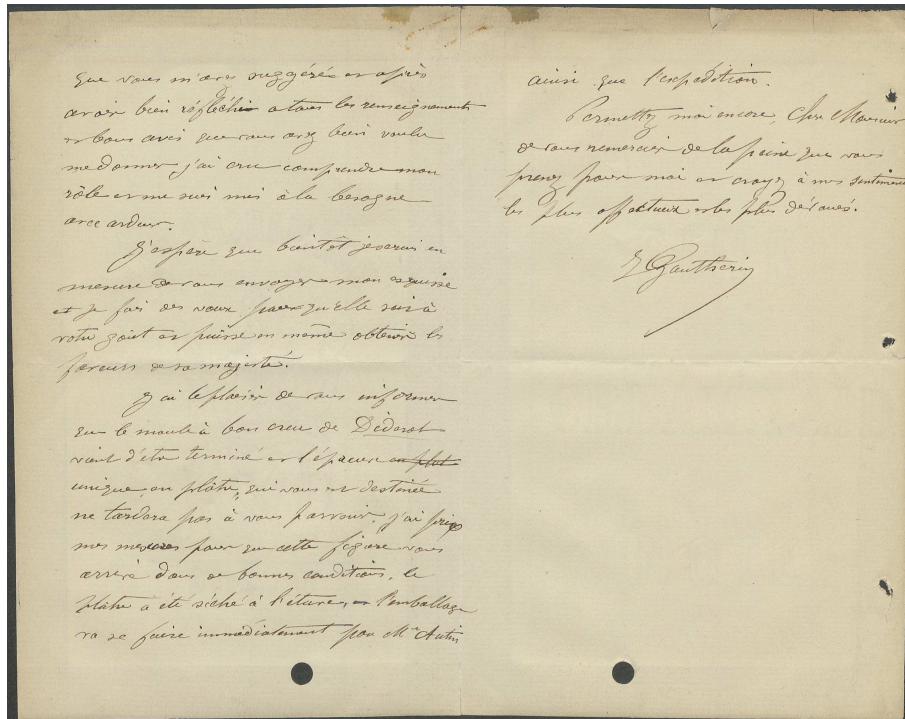 que vous m'avez suggérée et après
avoir bien réfléchi a tous les renseignements
et bons avis que vous avez bien voulu
me donner j'ai cru comprendre mon
rôle et me suis mis à la besogne
avec ardeur.
J'espère que bientôt je serai en
mesure de vous envoyer mon esquisse
et je fais des vœux pour qu'elle soit à
votre goût et puisse en même obtenir les
faveurs de sa majesté.
J'ai le plaisir de vous informer
que le moule à bon creux de Diderot
vient d'être terminé et l'épreuve en plat
unique, en plâtre, qui vous est destinée
ne tardera pas à vous parvenir. j'ai pris
mes mesures pour que cette figure vous
arrive dans de bonnes conditions, le
plâtre a été séché à l'étuve, l'emballage
va se faire immédiatement par Mr
ainsi que l'expédition.
Permettez moi encore, Cher Monsieur
de vous remercier de la peine que vous
prenez pour moi et croyez à mes sentiments
les plus affectueux et les plus dévoués.
J Gautherin